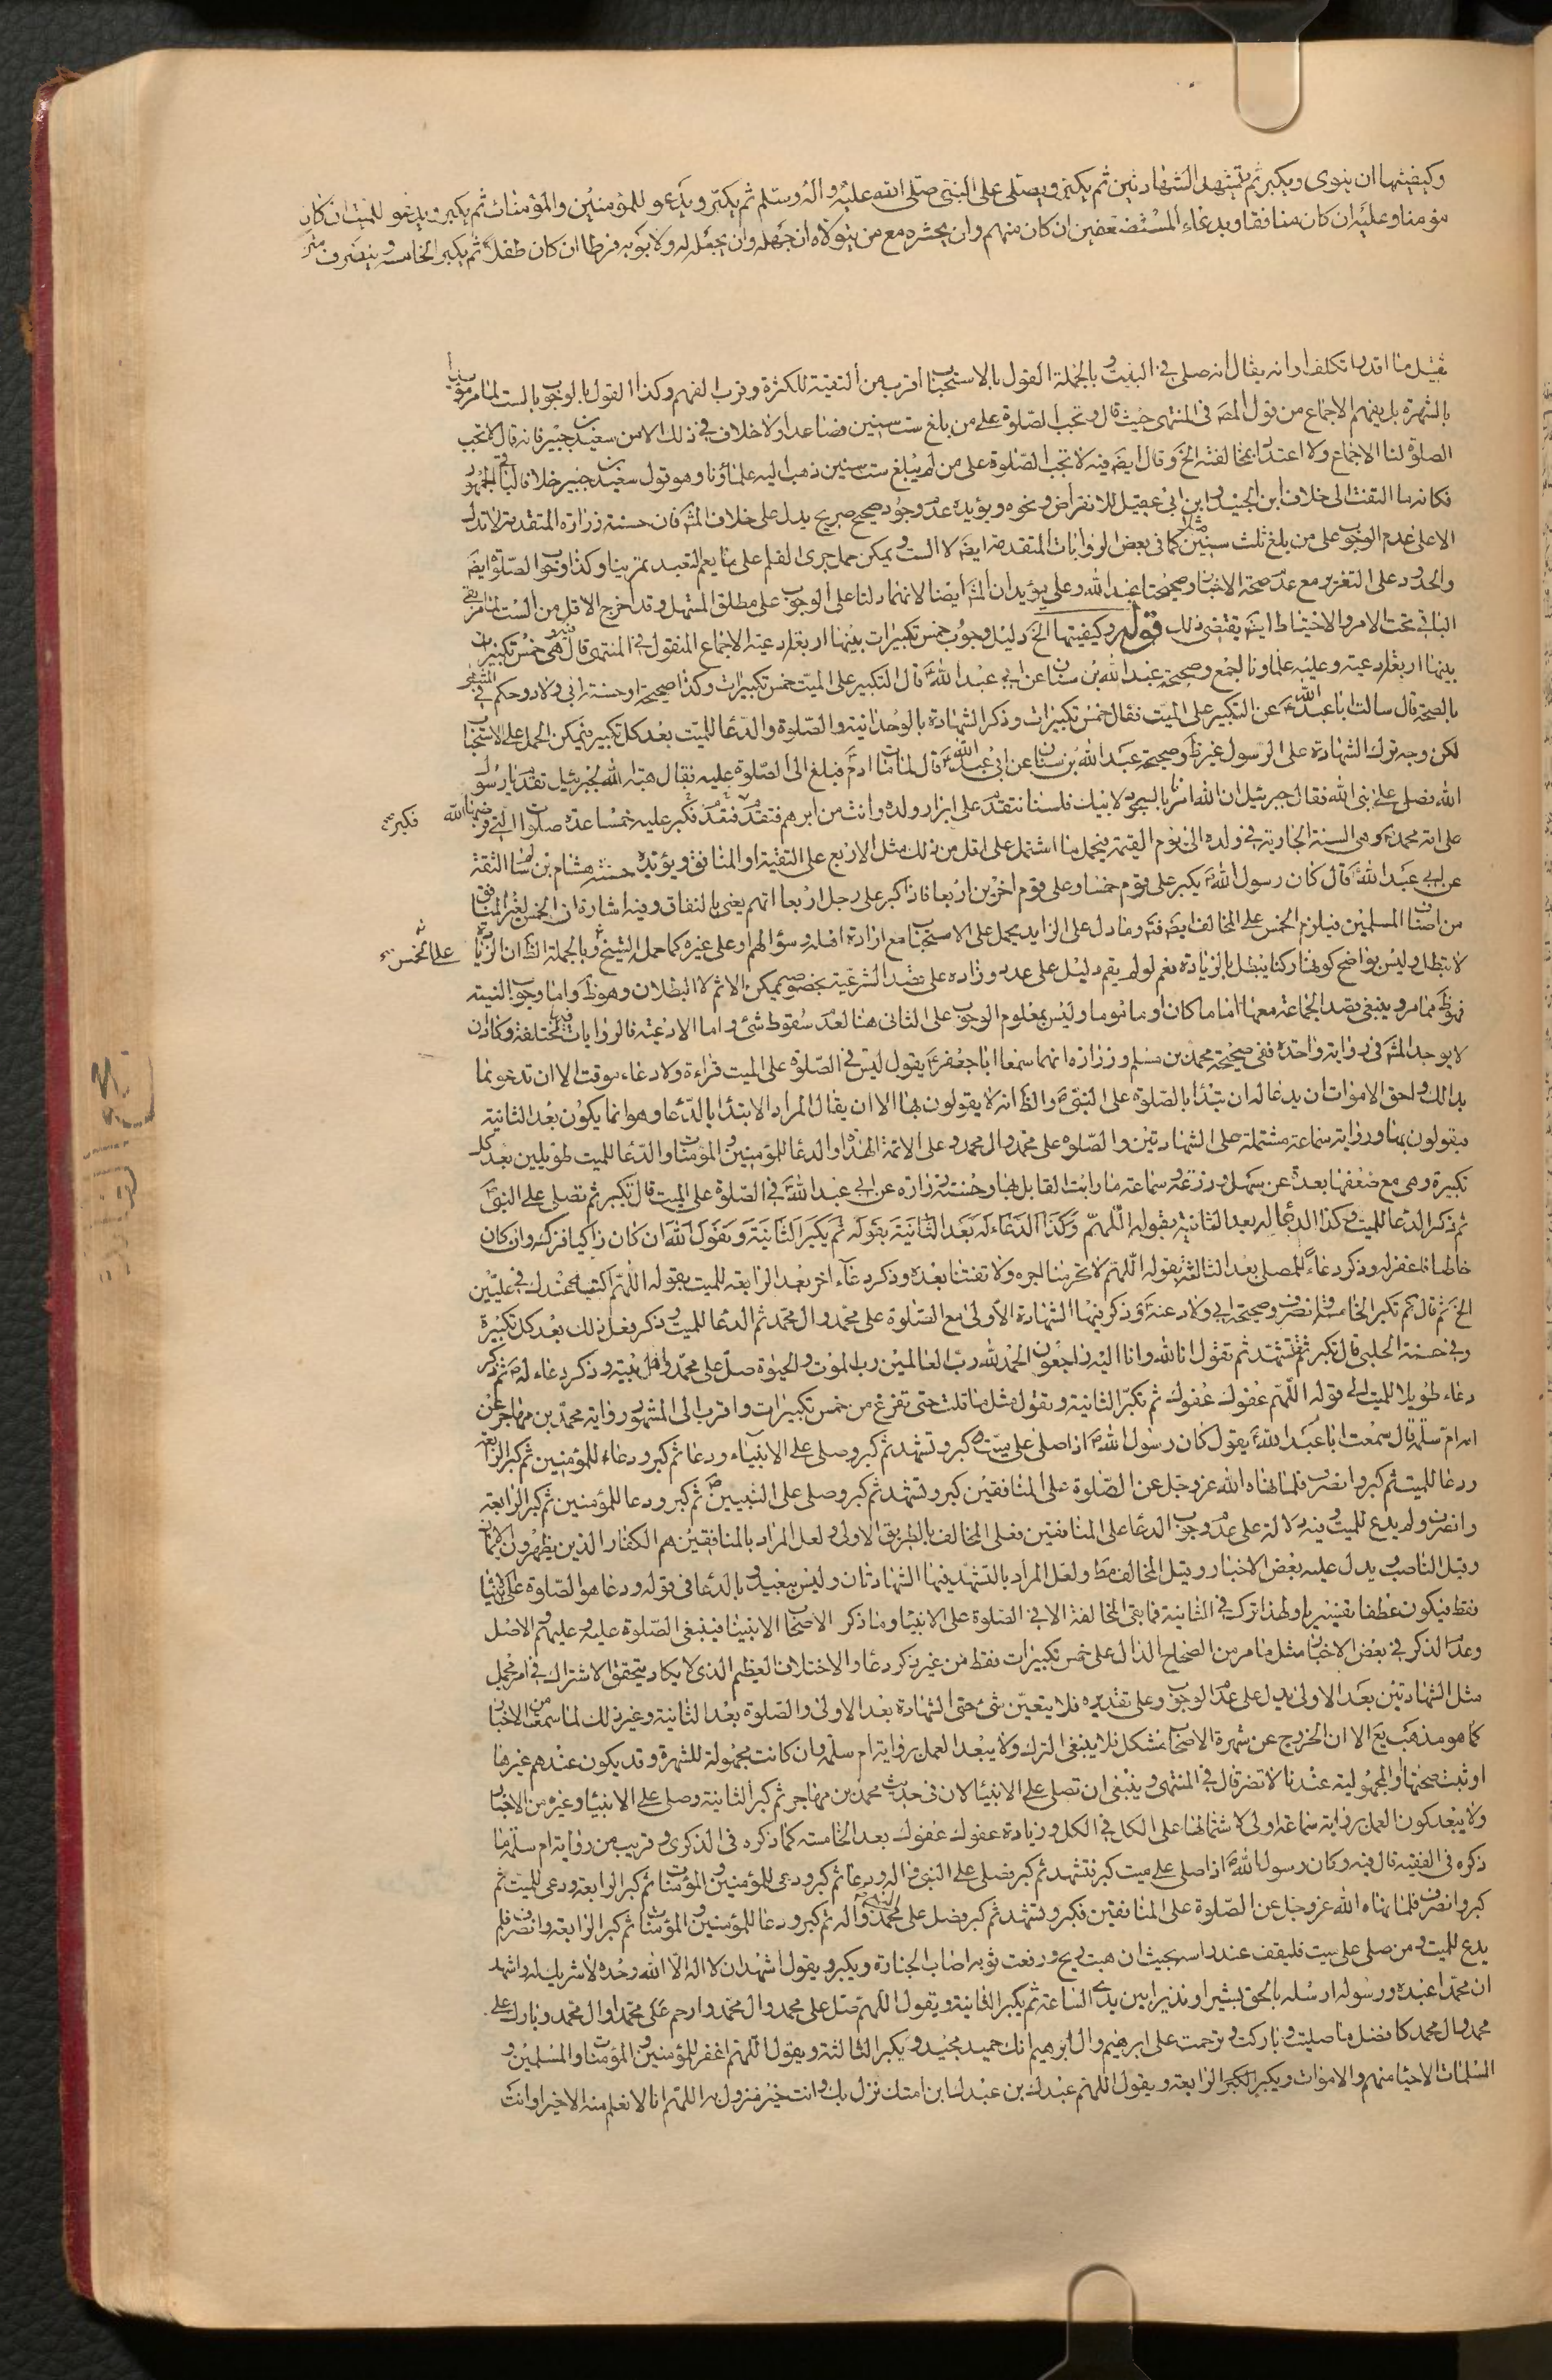 وكيفيتها ان ينوى ويكبر ثم يتشهد الشهادتين ثم يكبر ويصلى على النبى صلى الله عليه واله وسلم ثم يكبر ويدعو للمؤمنين والمؤمنات ثم يكبر ويدعو للميت ان كان
مؤمنا وعليه ان كان منافقا وبدعاء المستضعفين ان كان منهم وان يحشره مع من يتولاه ان جهله وان يجعله له ولابويه فرطا ان كان طفلا ثم يكبر الخامسة وينصرف
بالشهرة بل يفهم الاجماع من قول المصَ فى المنتهى حيث قال وتجب الصلوة على من بلغ ست سنين فصاعدا ولا خلاف فى ذلك الا من سعيد بن جبير فانه قال لا تجب
الصلوة لنا الاجماع ولا اعتداد بمخالفته الخ وقال ايضَ فيه لا تجب الصلوة على من لم يبلغ ست سنين ذهب اليه علماؤنا وهو قول سعيد بن جبير خلافا لباقى الجمهور
فكانه ما التفت الى خلاف ابن الجنيد وابن ابى عقيل للانقراض ونحوه ويؤيده عدم وجود صحيح صريح يدل على خلاف المشَ فان حسنة زرارة المتقدمة لا تدل
الا على عدم الوجوب على من بلغ ثلث سنين كما فى بعض الروايات المتقدمة ايضَ لا الست ويمكن حمل جرى القلم على ما يعم التعبد تمرينا وكذا وجوب الصلوة ايضَ
الباقى تحت الامر والاحتياط ايضَ يقتضى ذلك قوله وكيفيتها الخ دليل وجوب خمس تكبيرات بينها اربعة ادعية الاجماع المنقول فى المنتهى قال فيه وهى خمس تكبيرات
بينها اربعة ادعية وعليه علماؤنا اجمع وصحيحة عبد الله بن سنان عن ابى عبد الله ع قال التكبير على الميت خمس تكبيرات وكذا صحيحة او حسنة ابى ولاد وحكم فى المنتهى
بالصحة قال سالت ابا عبد الله ع عن التكبير على الميت فقال خمس تكبيرات وذكر الشهادة بالوحدانية والصلوة والدعا للميت بعد كل تكبير فيمكن الحمل على الاستحباب
لكن وجه ترك الشهادة على الرسول غير ظَ وصحيحة عبد الله بن سنان عن ابى عبد الله ع قال لما مات ادم فبلغ الى الصلوة عليه فقال هبة الله لجبرئيل تقدم يا رسول
الله فصل على نبى الله فقال جبرئيل ان الله امرنا بالسجود لابيك فلسنا نتقدم على ابرار ولده وانت من ابرهم فتقدم فتقدم فكبر عليه خمسا عدة صلوات التى فرضها الله
على امة محمد وهى السنة الجارية فى ولده الى يوم القيمة فيحمل ما اشتمل على اقل من ذلك مثل الاربع على التقية او المنافق ويؤيده حسنة هشام بن سالم الثقة
عن ابى عبد الله ع قال كان رسول الله ص يكبر على قوم خمسا وعلى قوم اخرين اربعا فاذا كبر على رجل اربعا اتهم يعنى بالنفاق وفيه اشارة ان الخمس لغير المنافق
من اصناف المسلمين فيلزم الخمس على المخالف ايضَ فتَ وما دل على الزايد يحمل على الاستحباب مع ارادة اهله وسؤالهم او على غيره كما حمل الشيخ وبالجملة الظَ ان الزيادة
على الخمس
لا تبطل وليس بواضح كونها ركنا يبطل بالزيادة نعم لو لم يقم دليل على عدد وزاده على قصد الشرعية بخصوصه يمكن الاثم لا البطلان وهو ظَ واما وجوب النية
فهو ظَ مما مر وينبغى قصد الجماعة معها اماما كان او ماموما وليس بمعلوم الوجوب على الثانى هنا لعدم سقوط شئ واما الادعية فالروايات فيها مختلفة وكادان
لا يوجد المشَ فى رواية واحدة ففى صحيحة محمد بن مسلم وزرارة انهما سمعا ابا جعفر ع يقول ليس فى الصلوة على الميت قراءة ولا دعاء موقت الا ان تدعو بما
بدا لك واحق الاموات ان يدعا له ان تبدأ بالصلوة على النبى ص والظَ انه لا يقولون بها الا ان يقال المراد الابتداء بالدعا وهو انما يكون بعد الثانية
فيقولون بها ورواية سماعة مشتملة على الشهادتين والصلوة على محمد وال محمد وعلى الائمة الهداة والدعا للمؤمنين والمؤمنات والدعا للميت طويلين بعد كل
تكبيرة وهى مع ضعفها بعدة عن سهل وزرعة وسماعة ما رايت القايل بها وحسنة زرارة عن ابى عبد الله ع فى الصلوة على الميت قال تكبر ثم تصلى على النبى ص
ثم ذكر الدعا للميت وكذا الدعا له بعد الثانية بقوله اللهم وكذا الدعاء له بعد الثانية بقوله ثم يكبر الثانية ويقول الله ان كان زاكيا فزكه وان كان
خاطئا فاغفر له وذكر دعاء للمصلى بعد الثالثة بقوله اللهم لا تحرمنا اجره ولا تفتنا بعده وذكر دعاء اخر بعد الرابعة للميت بقوله اللهم اكتبه عندك فى عليين
الخ ثم قال ثم تكبر الخامسة وانصرف وصحيحة ابى ولاد عنه ع وذكر فيها الشهادة الاولى مع الصلوة على محمد وال محمد ثم الدعا للميت وذكر فعل ذلك بعد كل تكبيرة
وفى حسنة الحلبى قال تكبر ثم تشهد ثم تقول انا لله وانا اليه راجعون الحمد لله رب العالمين رب الموت والحيوة صل على محمد واهل بيته وذكر دعاء له ص ثم ذكر
دعاء طويلا للميت الى قوله اللهم عفوك عفوك ثم تكبر الثانية وتقول مثل ما قلت حتى تفرغ من خمس تكبيرات واقرب الى المشهور رواية محمد بن مهاجر عن
امه ام سلمة قال سمعت ابا عبد الله ع يقول كان رسول الله ص اذا صلى على ميت كبر وتشهد ثم كبر وصلى على الانبياء ودعا ثم كبر ودعاء للمؤمنين ثم كبر الرابعة
ودعا للميت ثم كبر وانصرف فلما نهاه الله عز وجل عن الصلوة على المنافقين كبر وتشهد ثم كبر وصلى على النبيين ثم كبر ودعا للمؤمنين ثم كبر الرابعة
وانصرف ولم يدع للميت وفيه دلالة على عدم وجوب الدعا على المنافقين فعلى المخالف بالطريق الاولى ولعل المراد بالمنافقين هم الكفار الذين يظهرون الايمان
وقيل الناصب ويدل عليه بعض الاخبار وقيل المخالف مطَ ولعل المراد بالتشهد فيها الشهادتان وليس ببعيد وبالدعا فى قوله ودعا هو الصلوة على الانبياء
فقط فيكون عطفا تفسيريا ولهذا ترك فى الثانية فما بقى المخالفة الا فى الصلوة على الانبياء وما ذكر الاصحاب الا نبينا فينبغى الصلوة عليه وعليهم والاصل
وعدم الذكر فى بعض الاخبار مثل ما مر من الصحاح الدال على خمس تكبيرات فقط من غير ذكر دعا والاختلاف العظيم الذى لا يكاد يتحقق الاشتراك فى امر مجمل
مثل الشهادتين بعد الاولى يدل على عدم الوجوب وعلى تقديره فلا يتعين شئ حتى الشهادة بعد الاولى والصلوة بعد الثانية وغير ذلك لما سمعت من الاخبار
كما هو مذهب يع الا ان الخروج عن شهرة الاصحاب مشكل فلا ينبغى الترك ولا يبعد العمل برواية ام سلمة وان كانت مجهولة للشهرة وقد يكون عندهم غيرها
او ثبت صحتها والمجهولية عندنا لا تضر قال فى المنتهى وينبغى ان تصلى على الانبياء لان فى حديث محمد بن مهاجر ثم كبر الثانية وصلى على الانبياء وغيره من الاخبار
ولا يبعد كون العمل برواية سماعة اولى لاشتمالها على الكل فى الكل وزيادة عفوك عفوك بعد الخامسة كما ذكره فى الذكرى وقريب من رواية ام سلمة ما
ذكره فى الفقيه قال فيه وكان رسول الله ص اذا صلى على ميت كبر فتشهد ثم كبر فصلى على النبى واله ودعا ثم كبر ودعى للمؤمنين والمؤمنات ثم كبر الرابعة ودعى للميت ثم
كبر وانصرف فلما نهاه الله عز وجل عن الصلوة على المنافقين فكبر وتشهد ثم كبر وصلى على محمد واله ثم كبر ودعا للمؤمنين والمؤمنات ثم كبر الرابعة وانصرف فلم
يدع للميت ومن صلى على ميت فليقف عند راسه بحيث ان هبت ريح ورفعت ثوبه اصاب الجنازة ويكبر ويقول اشهد ان لا اله الا الله وحده لا شريك له واشهد
ان محمدا عبده ورسوله ارسله بالحق بشيرا ونذيرا بين يدى الساعة ثم يكبر الثانية ويقول اللهم صل على محمد وال محمد وارحم على محمدا وال محمد وبارك على
محمد وال محمد كافضل ما صليت وباركت وترحمت على ابرهيم وال ابرهيم انك حميد مجيد ويكبر الثالثة ويقول اللهم اغفر للمؤمنين والمؤمنات والمسلمين و
المسلمات الاحياء منهم والاموات ويكبر الرابعة ويقول اللهم عبدك بن عبدك ابن امتك نزل بك وانت خير منزول به اللهم انا لا نعلم منه الا خيرا وانت